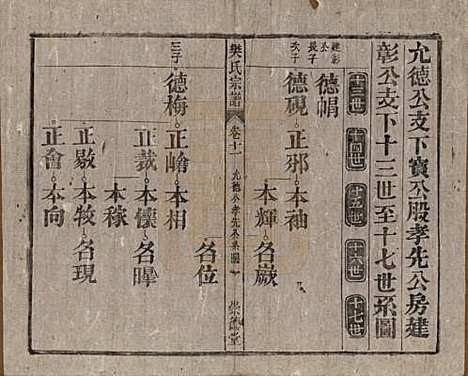 允德公支下寶公股孝先公房建
彰公支下十三世至十七世系圖
十三世
十四世
十五世
十六世
十七世
建彰公長子
德帽
次子
德硯 正邪 本袖
本輝 名嶽
樊氏宗譜
卷十一
允德公孝先公系圖
崇德堂
名位
三子
德梅 正嶒 本相
正裁 本懷 名暉
本稼
正敭 本牧 名現
正會 本向